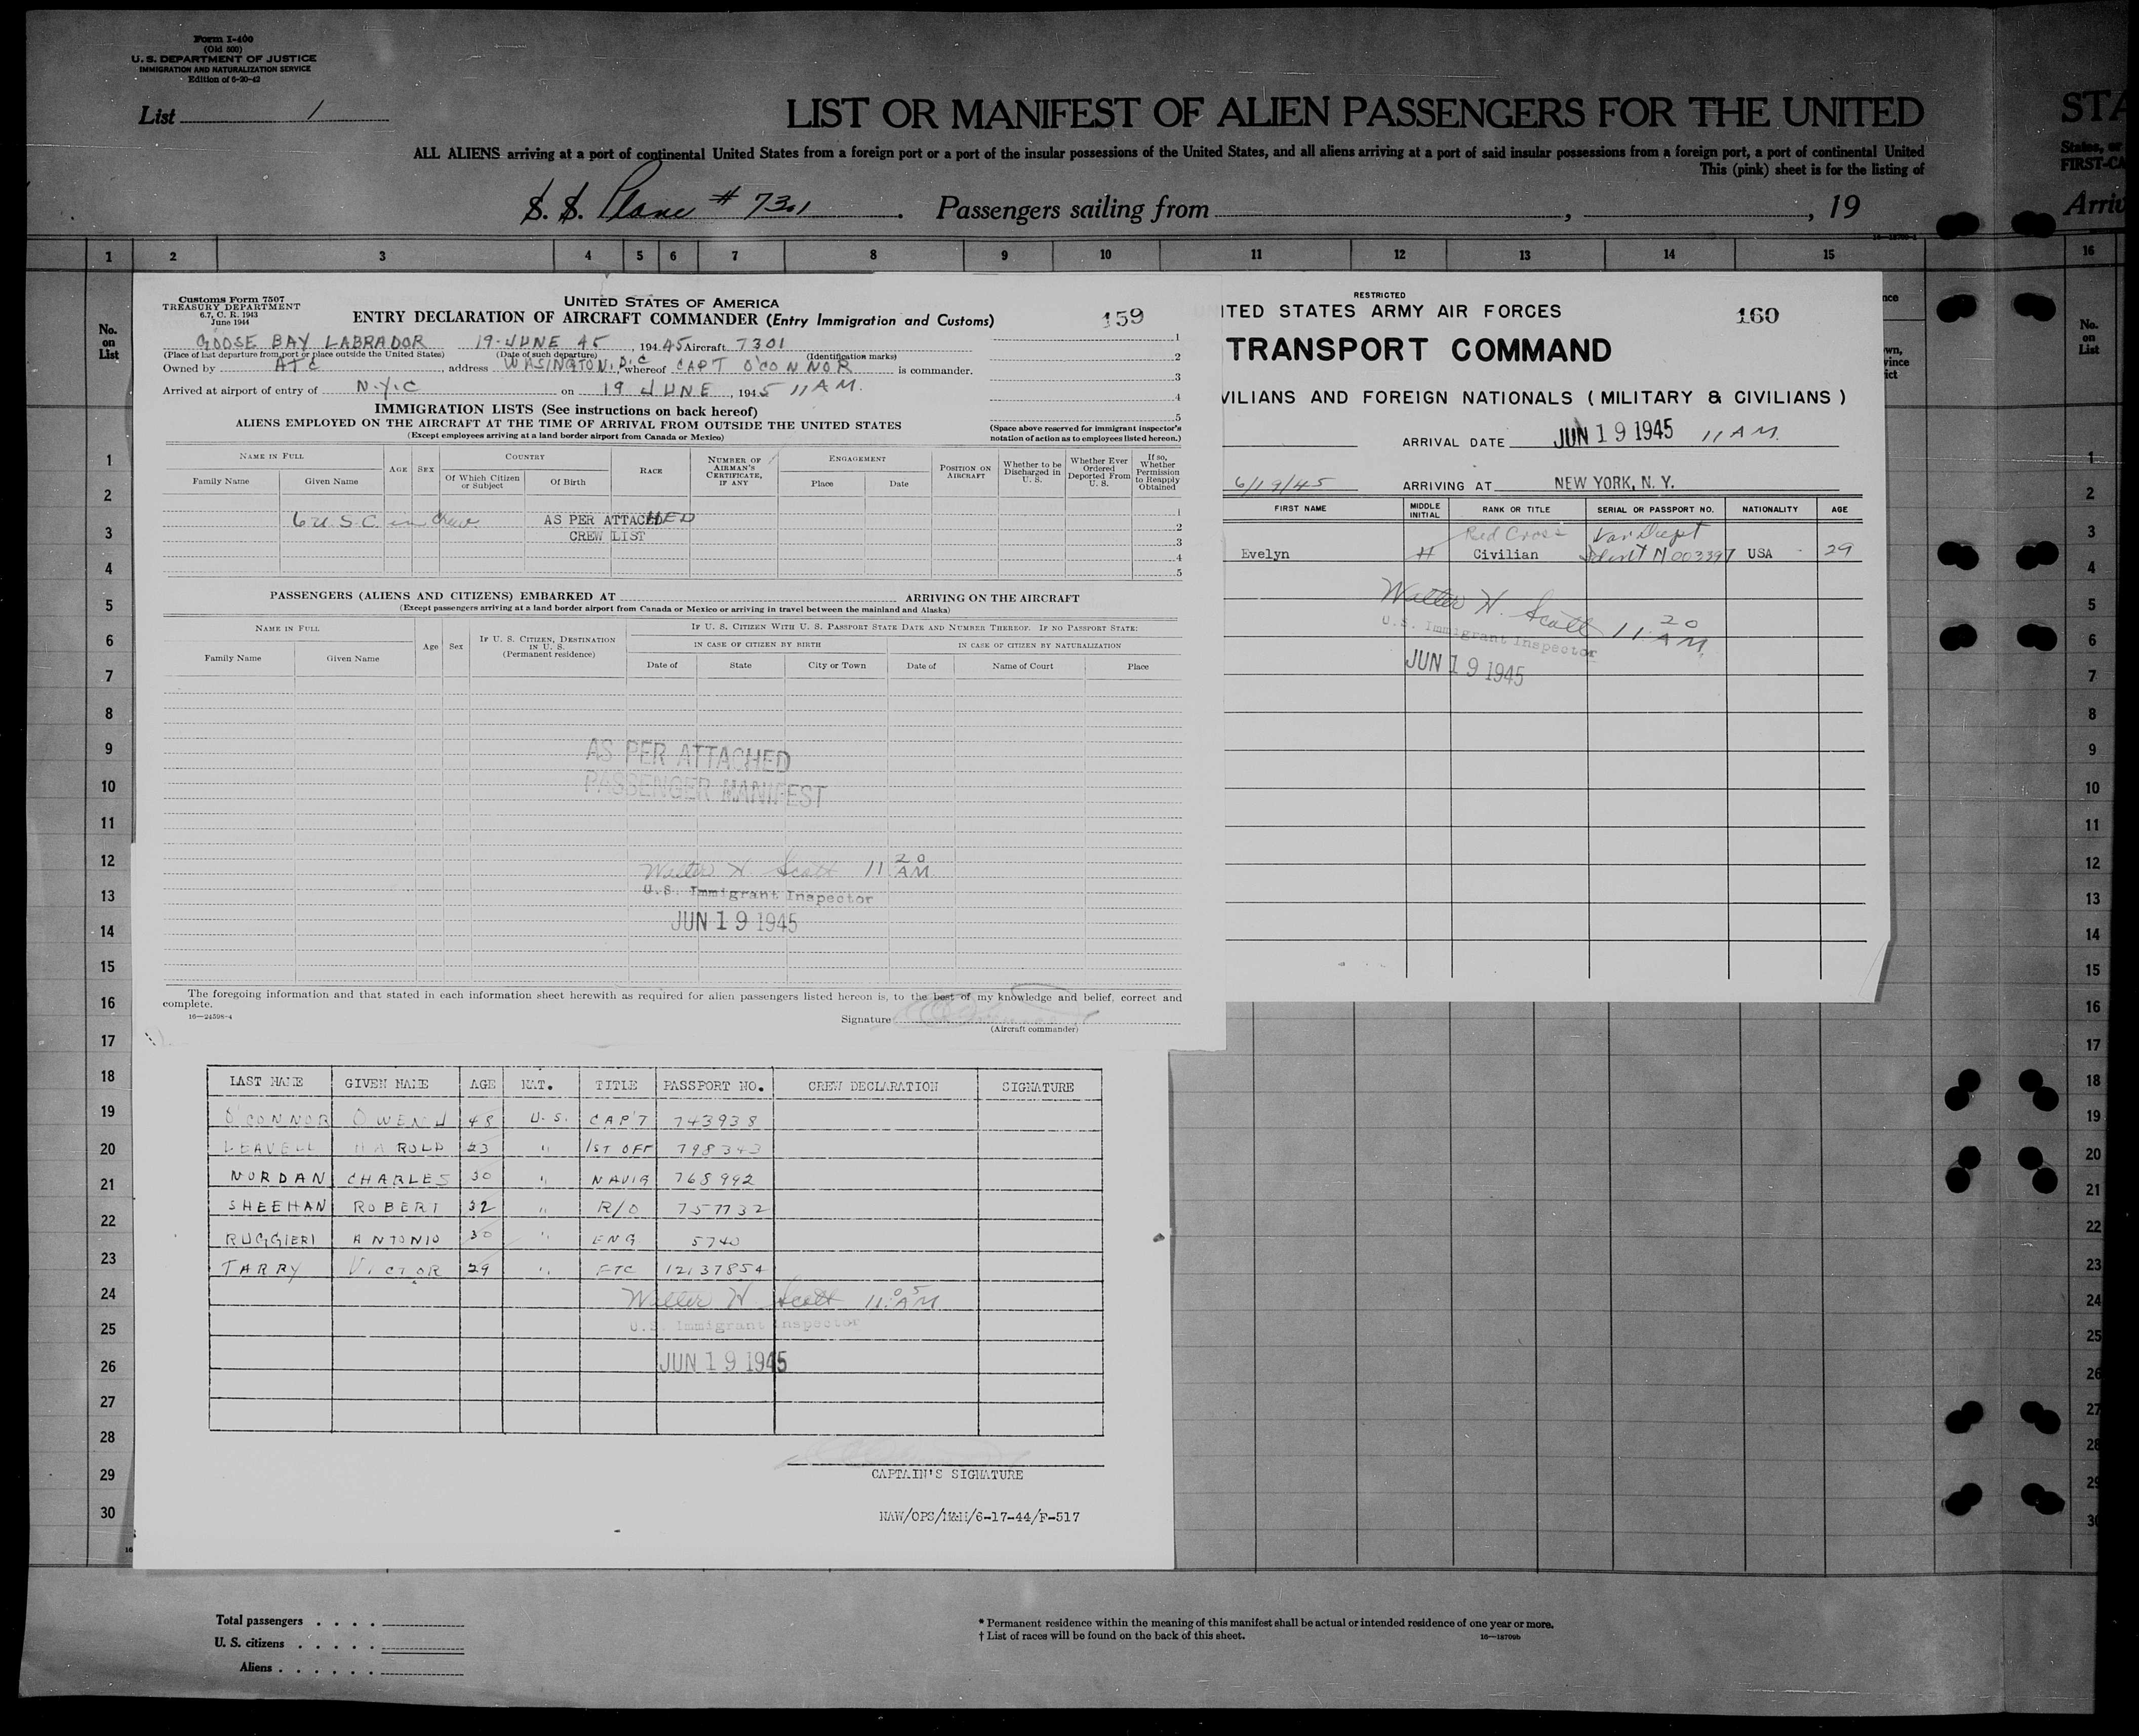 Form I-400
(Old 500)
U. S. DEPARTMENT OF JUSTICE
IMMIGRATION AND NATURALIZATION SERVICE
Edition of 6-20-42
List 1
LIST OR MANIFEST OF ALIEN PASSENGERS FOR THE UNITED
STA
ALL ALIENS arriving at a port of continental United States from a foreign port or a port of the insular possessions of the United States, and all aliens arriving at a port of said insular possessions from a foreign port, a port of continental United
States, or
This (pink) sheet is for the listing of
FIRST-CA
S. S. Plane # 7301. Passengers sailing from , , 19
Arriv
1 2 3 4 5 6 7 8 9 10 11 12 13 14 15 16
No. on List
1
2
3
4
5
6
7
8
9
10
11
12
13
14
15
16
17
18
19
20
21
22
23
24
25
26
27
28
29
30
Customs Form 7507
TREASURY DEPARTMENT
6.7, C. R. 1943
June 1944
UNITED STATES OF AMERICA
ENTRY DECLARATION OF AIRCRAFT COMMANDER (Entry Immigration and Customs)
159
GOOSE BAY LABRADOR 19 JUNE 45, 194 45 Aircraft 7301
(Place of last departure from port or place outside the United States) (Date of such departure) (Identification marks)
Owned by ATC, address WASINGTON, D.C., whereof CAPT O'CONNOR is commander.
Arrived at airport of entry of N.Y.C on 19 JUNE, 1945 11 AM.
IMMIGRATION LISTS (See instructions on back hereof)
ALIENS EMPLOYED ON THE AIRCRAFT AT THE TIME OF ARRIVAL FROM OUTSIDE THE UNITED STATES
(Except employees arriving at a land border airport from Canada or Mexico)
1
2
3
4
5
(Space above reserved for immigrant inspector's
notation of action as to employees listed hereon.)
NAME IN FULL
Family Name Given Name
AGE SEX
COUNTRY
Of Which Citizen or Subject Of Birth
RACE
NUMBER OF AIRMAN'S CERTIFICATE, IF ANY
ENGAGEMENT
Place Date
POSITION ON AIRCRAFT
Whether to be Discharged in U. S.
Whether Ever Ordered Deported From U. S.
If so, Whether Permission to Reapply Obtained
6 U S C in Crew AS PER ATTACHED
CREW LIST
1
2
3
4
5
PASSENGERS (ALIENS AND CITIZENS) EMBARKED AT ARRIVING ON THE AIRCRAFT
(Except passengers arriving at a land border airport from Canada or Mexico or arriving in travel between the mainland and Alaska)
NAME IN FULL
Family Name Given Name
Age Sex
IF U. S. CITIZEN, DESTINATION IN U. S. (Permanent residence)
IF U. S. CITIZEN WITH U. S. PASSPORT STATE DATE AND NUMBER THEREOF. IF NO PASSPORT STATE:
IN CASE OF CITIZEN BY BIRTH IN CASE OF CITIZEN BY NATURALIZATION
Date of State City or Town Date of Name of Court Place
AS PER ATTACHED
PASSENGER MANIFEST
Walter H. Scott 11 20 AM
U.S. Immigrant Inspector
JUN 19 1945
The foregoing information and that stated in each information sheet herewith as required for alien passengers listed hereon is, to the best of my knowledge and belief, correct and
complete.
16—24598-4
Signature
(Aircraft commander)
RESTRICTED
ITED STATES ARMY AIR FORCES
160
TRANSPORT COMMAND
VILIANS AND FOREIGN NATIONALS ( MILITARY & CIVILIANS )
ARRIVAL DATE JUN 19 1945 11 AM.
6/19/45 ARRIVING AT NEW YORK, N. Y.
FIRST NAME MIDDLE INITIAL RANK OR TITLE SERIAL OR PASSPORT NO. NATIONALITY AGE
Red Cross War Dept
Evelyn H Civilian Ident N 003397 USA 29
Walter H. Scott 11 20 AM
U.S. Immigrant Inspector
JUN 19 1945
LAST NAME GIVEN NAME AGE NAT. TITLE PASSPORT NO. CREW DECLARATION SIGNATURE
O'CONNOR OWEN J 48 U.S. CAP'T 743938
LEAVELL HAROLD 23 " 1ST OFF 798343
NORDAN CHARLES 30 " NAVIG 768992
SHEEHAN ROBERT 32 " R/O 757732
RUGGIERI ANTONIO 30 " ENG 5740
TARRY VICTOR 29 " FTC 12137854
Walter H. Scott 11 05 AM
U.S. Immigrant Inspector
JUN 19 1945
CAPTAIN'S SIGNATURE
NAW/OPS/M&H/6-17-44/F-517
Total passengers
U. S. citizens
Aliens
* Permanent residence within the meaning of this manifest shall be actual or intended residence of one year or more.
† List of races will be found on the back of this sheet.
16—18709b